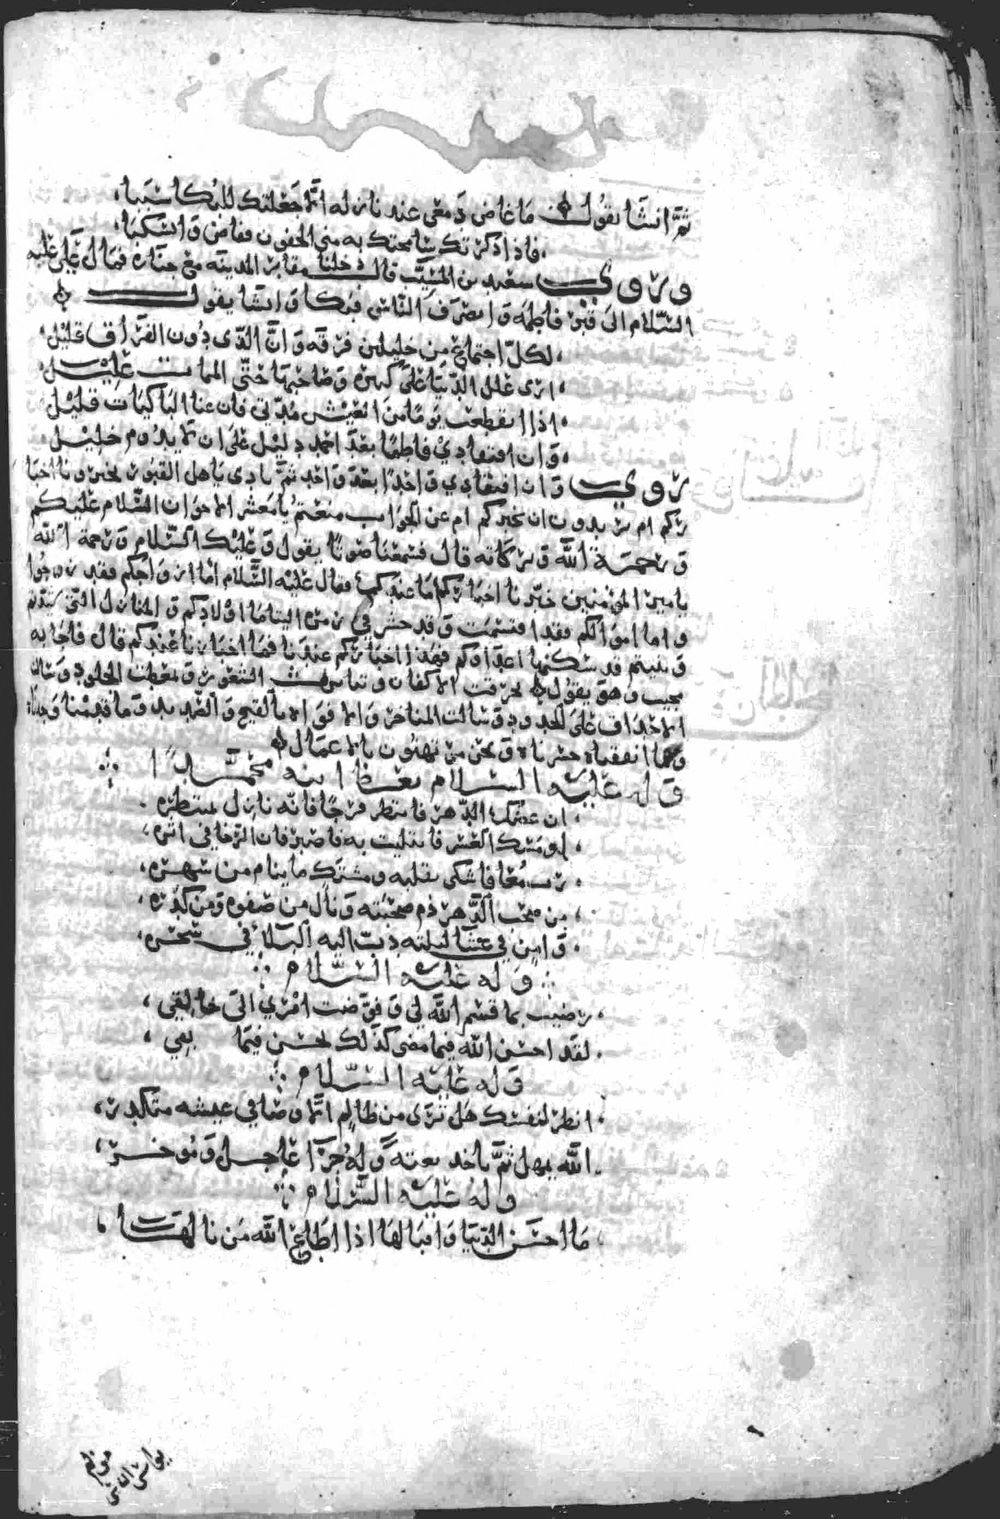 ثمَّ انشا يقول ما غاض دمعي عند نازله الا جعلتك للبكا سببا
فاذا ذكرتك سامحتك به مني الجفون ففاض وانسكبا
وروي سعيد بن المسيّب قال دخلنا مقابر المدينه مع جنازه فمال علي عليه
السلام الى قبر فاطمه وانصرف الناس فبكا وانشا يقول
لكل اجتماع من خليلين فرقه وان الذي دون الفراق قليل
ارى علل الدنيا علي كثيره وصاحبها حتى الممات عليل
اذا انقطعت يوما من العيش مدتي فان عنا الباكيات قليل
وان افتقادي فاطما بعد احمد دليل على ان لا يدوم خليل
روي وان افتقادي واحدا بعد واحد ثم نادى ياهل القبور تخبرونا اخبا
ركم ام تريدون ان نخبركم ام عن الجواب منعتم يا معشر الاخوان السلام عليكم
ورحمة الله وبركاته قال فسمعنا صوتا يقول وعليك السلام ورحمة الله
يا مير المؤمنين خبرنا اخباركم ما عندكم فقال عليه السلام اما ازواجكم فقد تزوجوا
واما اموالكم فقد اقتسمت وقد حشر في زمرة اليتاما اولادكم والمنازل التي شيدتم
وبنيتم قد سكنها اعداوكم فهذا اخباركم عندنا فما اخبارنا عندكم قال فاجابه
مجيب وهو يقول تخرقت الاكفان وتناثرت الشعور وتقطعت الجلود وسالت
الاحداق على الخدود وسالت المناخر والافواه بالقيح والصديد وما قدمنا وجدناه
وما انفقناه خسرناه ونحن مرتهنون بالاعمال
وله عليه السلام يعظ ابنه محمدا
ان عضك الدهر فانتظر فرجا فانه نازل بمنتظره
او مسك العسر فابتليت به فاصبر فان الرخا في اثره
رب معافا شكى بقلبه ومشتك ما ينام من سهره
من صحب الدهر ذم صحبته ونال من صفوه ومن كدره
وامن في عشا ليلته دب اليه البلا في سحره
وله عليه السلام
رضيت بما قسم الله لي وفوضت امري الى خالقي
لقد احسن الله فيما مضى كذلك يحسن فيما بقي
وله عليه السلام
انظر لنفسك هل ترى من ظالم الا وصافي عيشه متكدر
الله يمهل ثم ياخذ بغته وله جزآ عاجل وموخر
وله عليه السلام
ما احسن الدنيا واقبالها اذا اطاع الله من نالها
يواسى